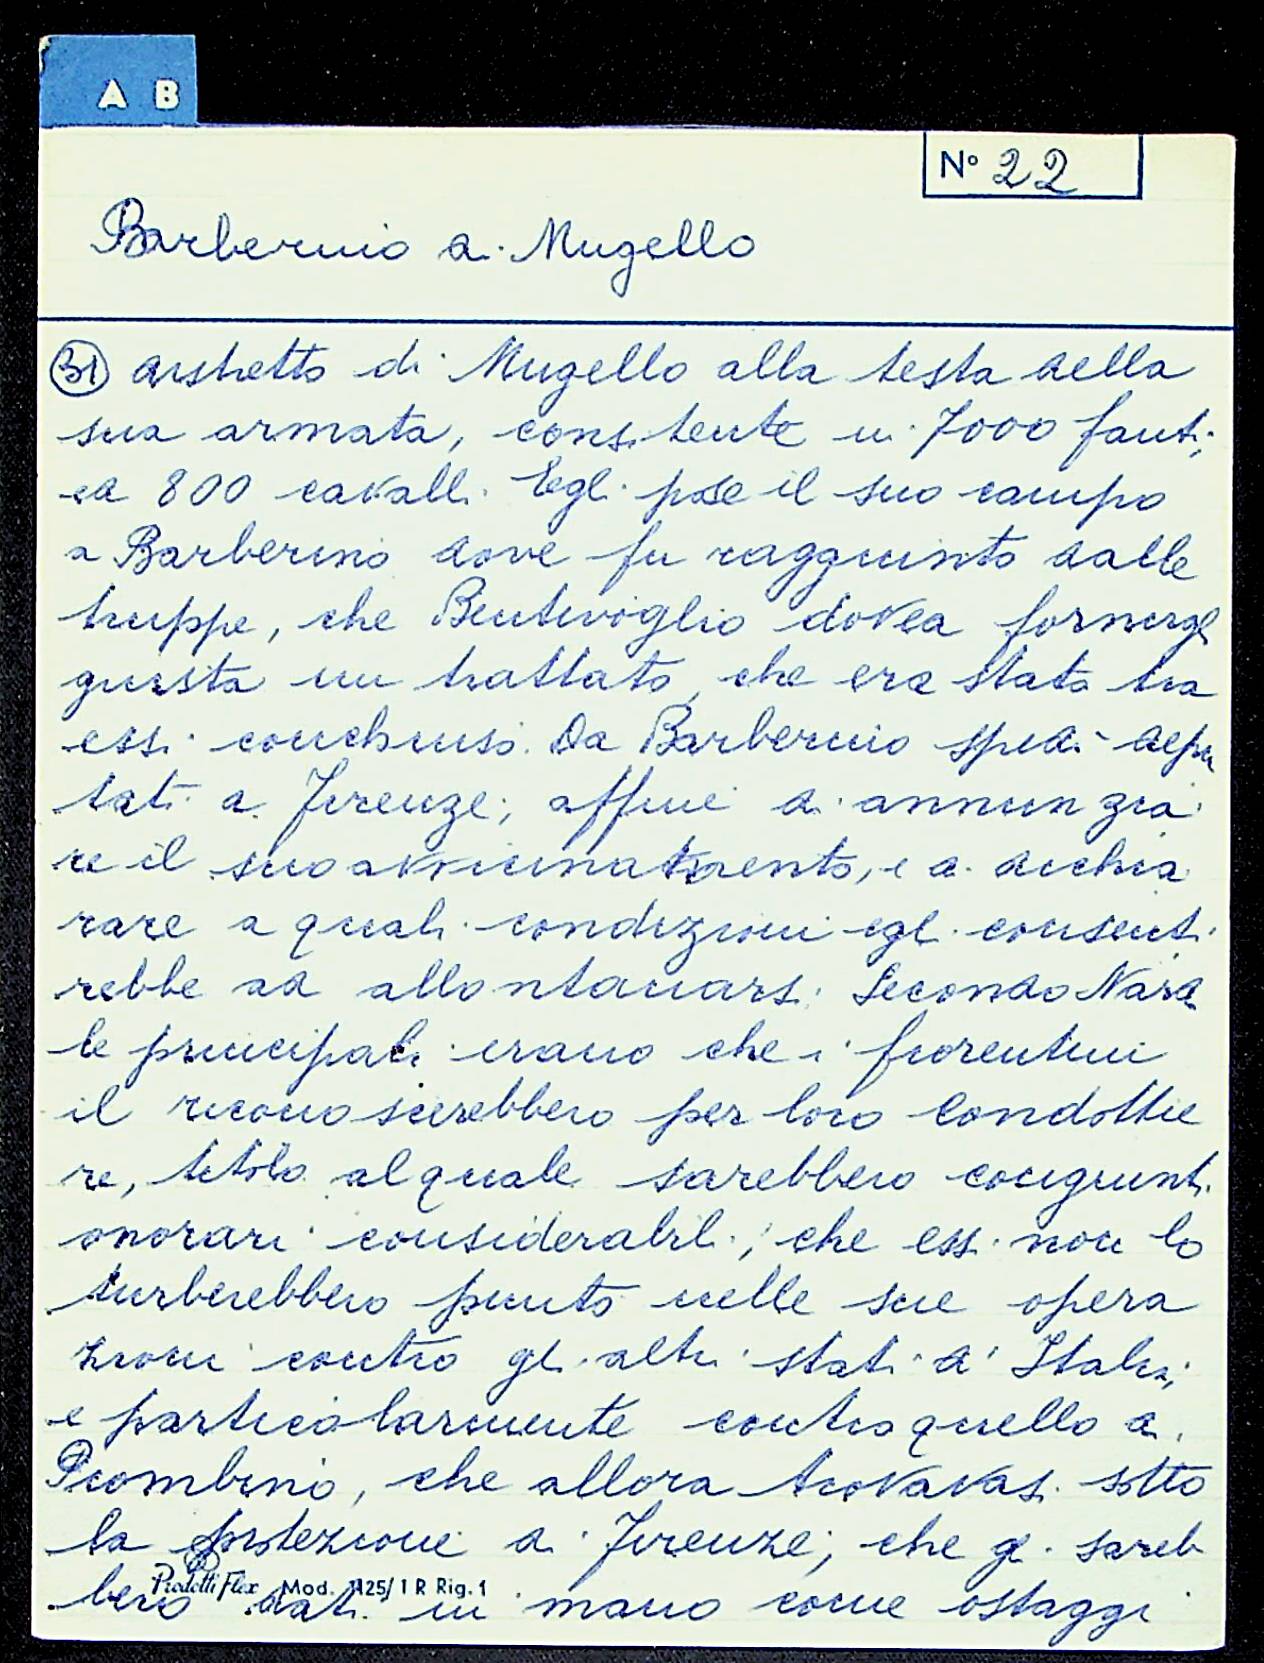 A B
Nº 22
Barberino di Mugello
31 distretto di Mugello alla testa della
sua armata, consistente in 7000 fanti,
ed 800 cavalli. Egli pose il suo campo
a Barberino dove fu raggiunto dalle
truppe, che Bentivoglio dovea fornirgli
giusta un trattato, che era stato tra
essi conchiuso. Da Barberino spedì depu
tati a Firenze, affine di annunzia
re il suo avvicinamento, e di dichia
rare a quali condizioni egli consenti
rebbe ad allontanarsi. Secondo Nardi
le principali erano che i fiorentini
il riconoscerebbero per loro condottie
re, titolo al quale sarebbero congiunti
onorari considerabili; che essi non lo
turberebbero punto nelle sue opera
zioni contro gli altri stati d'Italia,
e particolarmente contro quello di
Piombino, che allora trovavasi sotto
la protezione di Firenze; che gli sareb
bero dati in mano come ostaggi
Prodotti Flex Mod. 1125/1 R Rig. 1